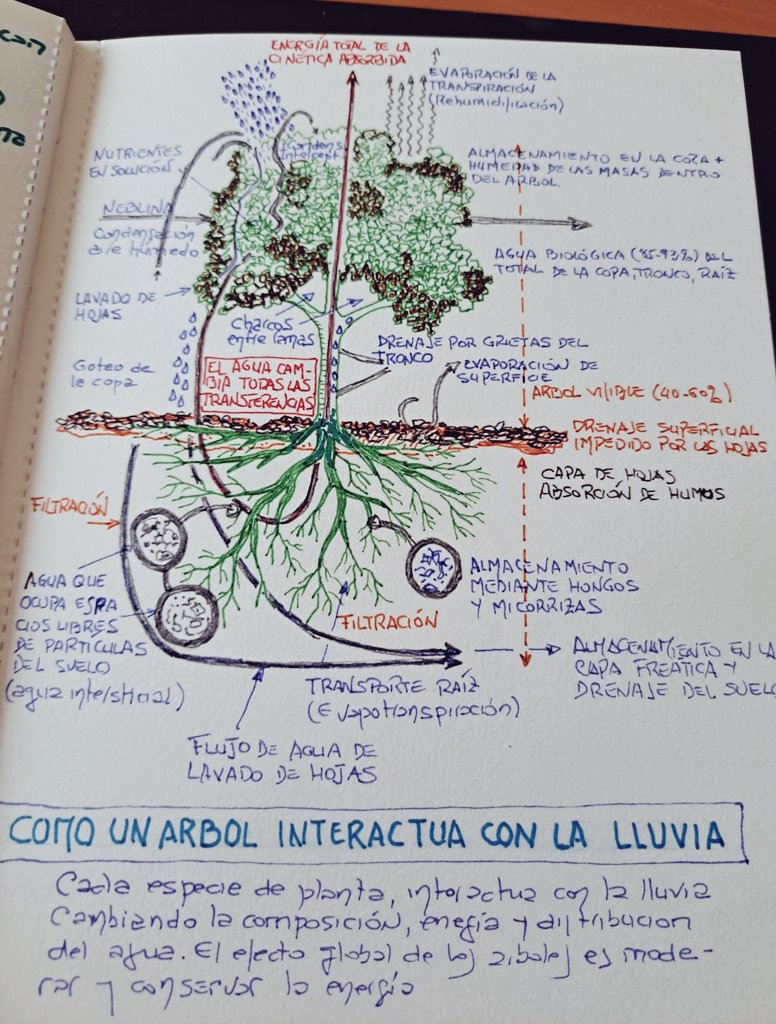 can
ENERGÍA TOTAL DE LA
CINÉTICA ABSORBIDA
EVAPORACIÓN DE LA
TRANSPIRACIÓN
(Rehumidificación)
NUTRIENTES
EN SOLUCIÓN
ALMACENAMIENTO EN LA COPA +
HUMEDAD DE LAS MASAS DENTRO
DEL ARBOL.
NEBLINA
Condensación
aire húmedo
AGUA BIOLÓGICA (85-93%) DEL
TOTAL DE LA COPA, TRONCO, RAÍZ
LAVADO DE
HOJAS
Charcos
entre ramas
DRENAJE POR GRIETAS DEL
TRONCO
Goteo de
la copa
EL AGUA CAM-
BIA TODAS LAS
TRANSFERENCIAS
EVAPORACIÓN DE
SUPERFICIE
ARBOL VISIBLE (40-60%)
DRENAJE SUPERFICIAL
IMPEDIDO POR LAS HOJAS
CAPA DE HOJAS
ABSORCIÓN DE HUMUS
FILTRACIÓN
AGUA QUE
OCUPA ESPA
CIOS LIBRES
DE PARTÍCULAS
DEL SUELO
(agua intersticial)
ALMACENAMIENTO
MEDIANTE HONGOS
Y MICORRIZAS
FILTRACIÓN
ALMACENAMIENTO EN LA
CAPA FREATICA Y
DRENAJE DEL SUELO
TRANSPORTE RAÍZ
(Evapotranspiración)
FLUJO DE AGUA DE
LAVADO DE HOJAS
COMO UN ARBOL INTERACTUA CON LA LLUVIA
Cada especie de planta, interactua con la lluvia
Cambiando la composición, energía y distribucion
del agua. El efecto global de los arboles es mode-
rar y conservar la energía